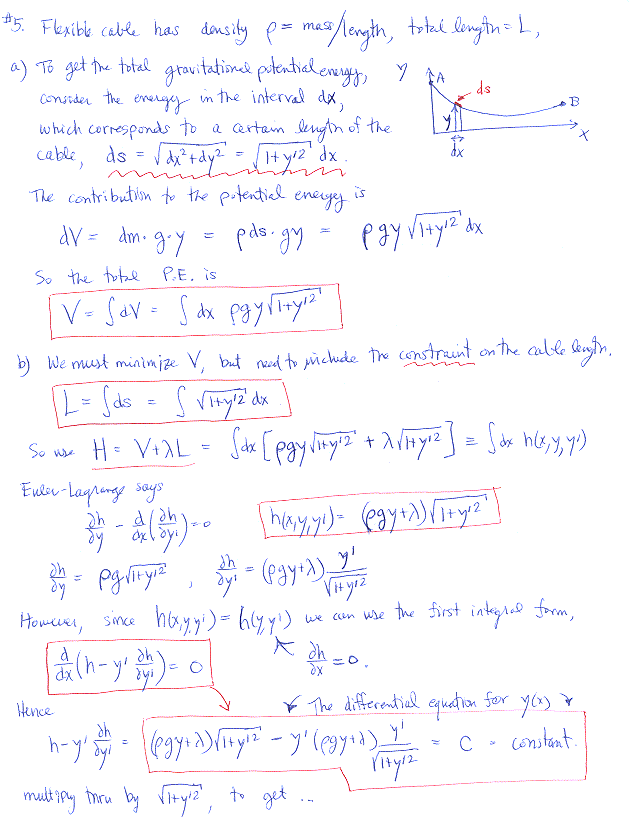 #5. Flexible cable has density ρ = mass/length, total length = L,
a) To get the total gravitational potential energy,
consider the energy in the interval dx,
which corresponds to a certain length of the
cable, ds = √(dx²+dy²) = √(1+y'²) dx.
y
A
ds
B
y
x
dx
The contribution to the potential energy is
dV = dm·g·y = ρds·gy = ρgy √(1+y'²) dx
So the total P.E. is
V = ∫dV = ∫dx ρgy√(1+y'²)
b) We must minimize V, but need to include the constraint on the cable length.
L = ∫ds = ∫ √(1+y'²) dx
So use H = V+λL = ∫dx [ρgy√(1+y'²) + λ√(1+y'²)] ≡ ∫dx h(x,y,y')
Euler-Lagrange says
∂h/∂y - d/dx(∂h/∂y') = 0
h(x,y,y') = (ρgy+λ)√(1+y'²)
∂h/∂y = ρg√(1+y'²) , ∂h/∂y' = (ρgy+λ) y'/√(1+y'²)
However, since h(x,y,y') = h(y,y') we can use the first integral form,
d/dx(h-y' ∂h/∂y') = 0
∂h/∂x = 0.
Hence
The differential equation for y(x)
h-y' ∂h/∂y' = (ρgy+λ)√(1+y'²) - y'(ρgy+λ) y'/√(1+y'²) = C = constant.
multiply thru by √(1+y'²), to get ...